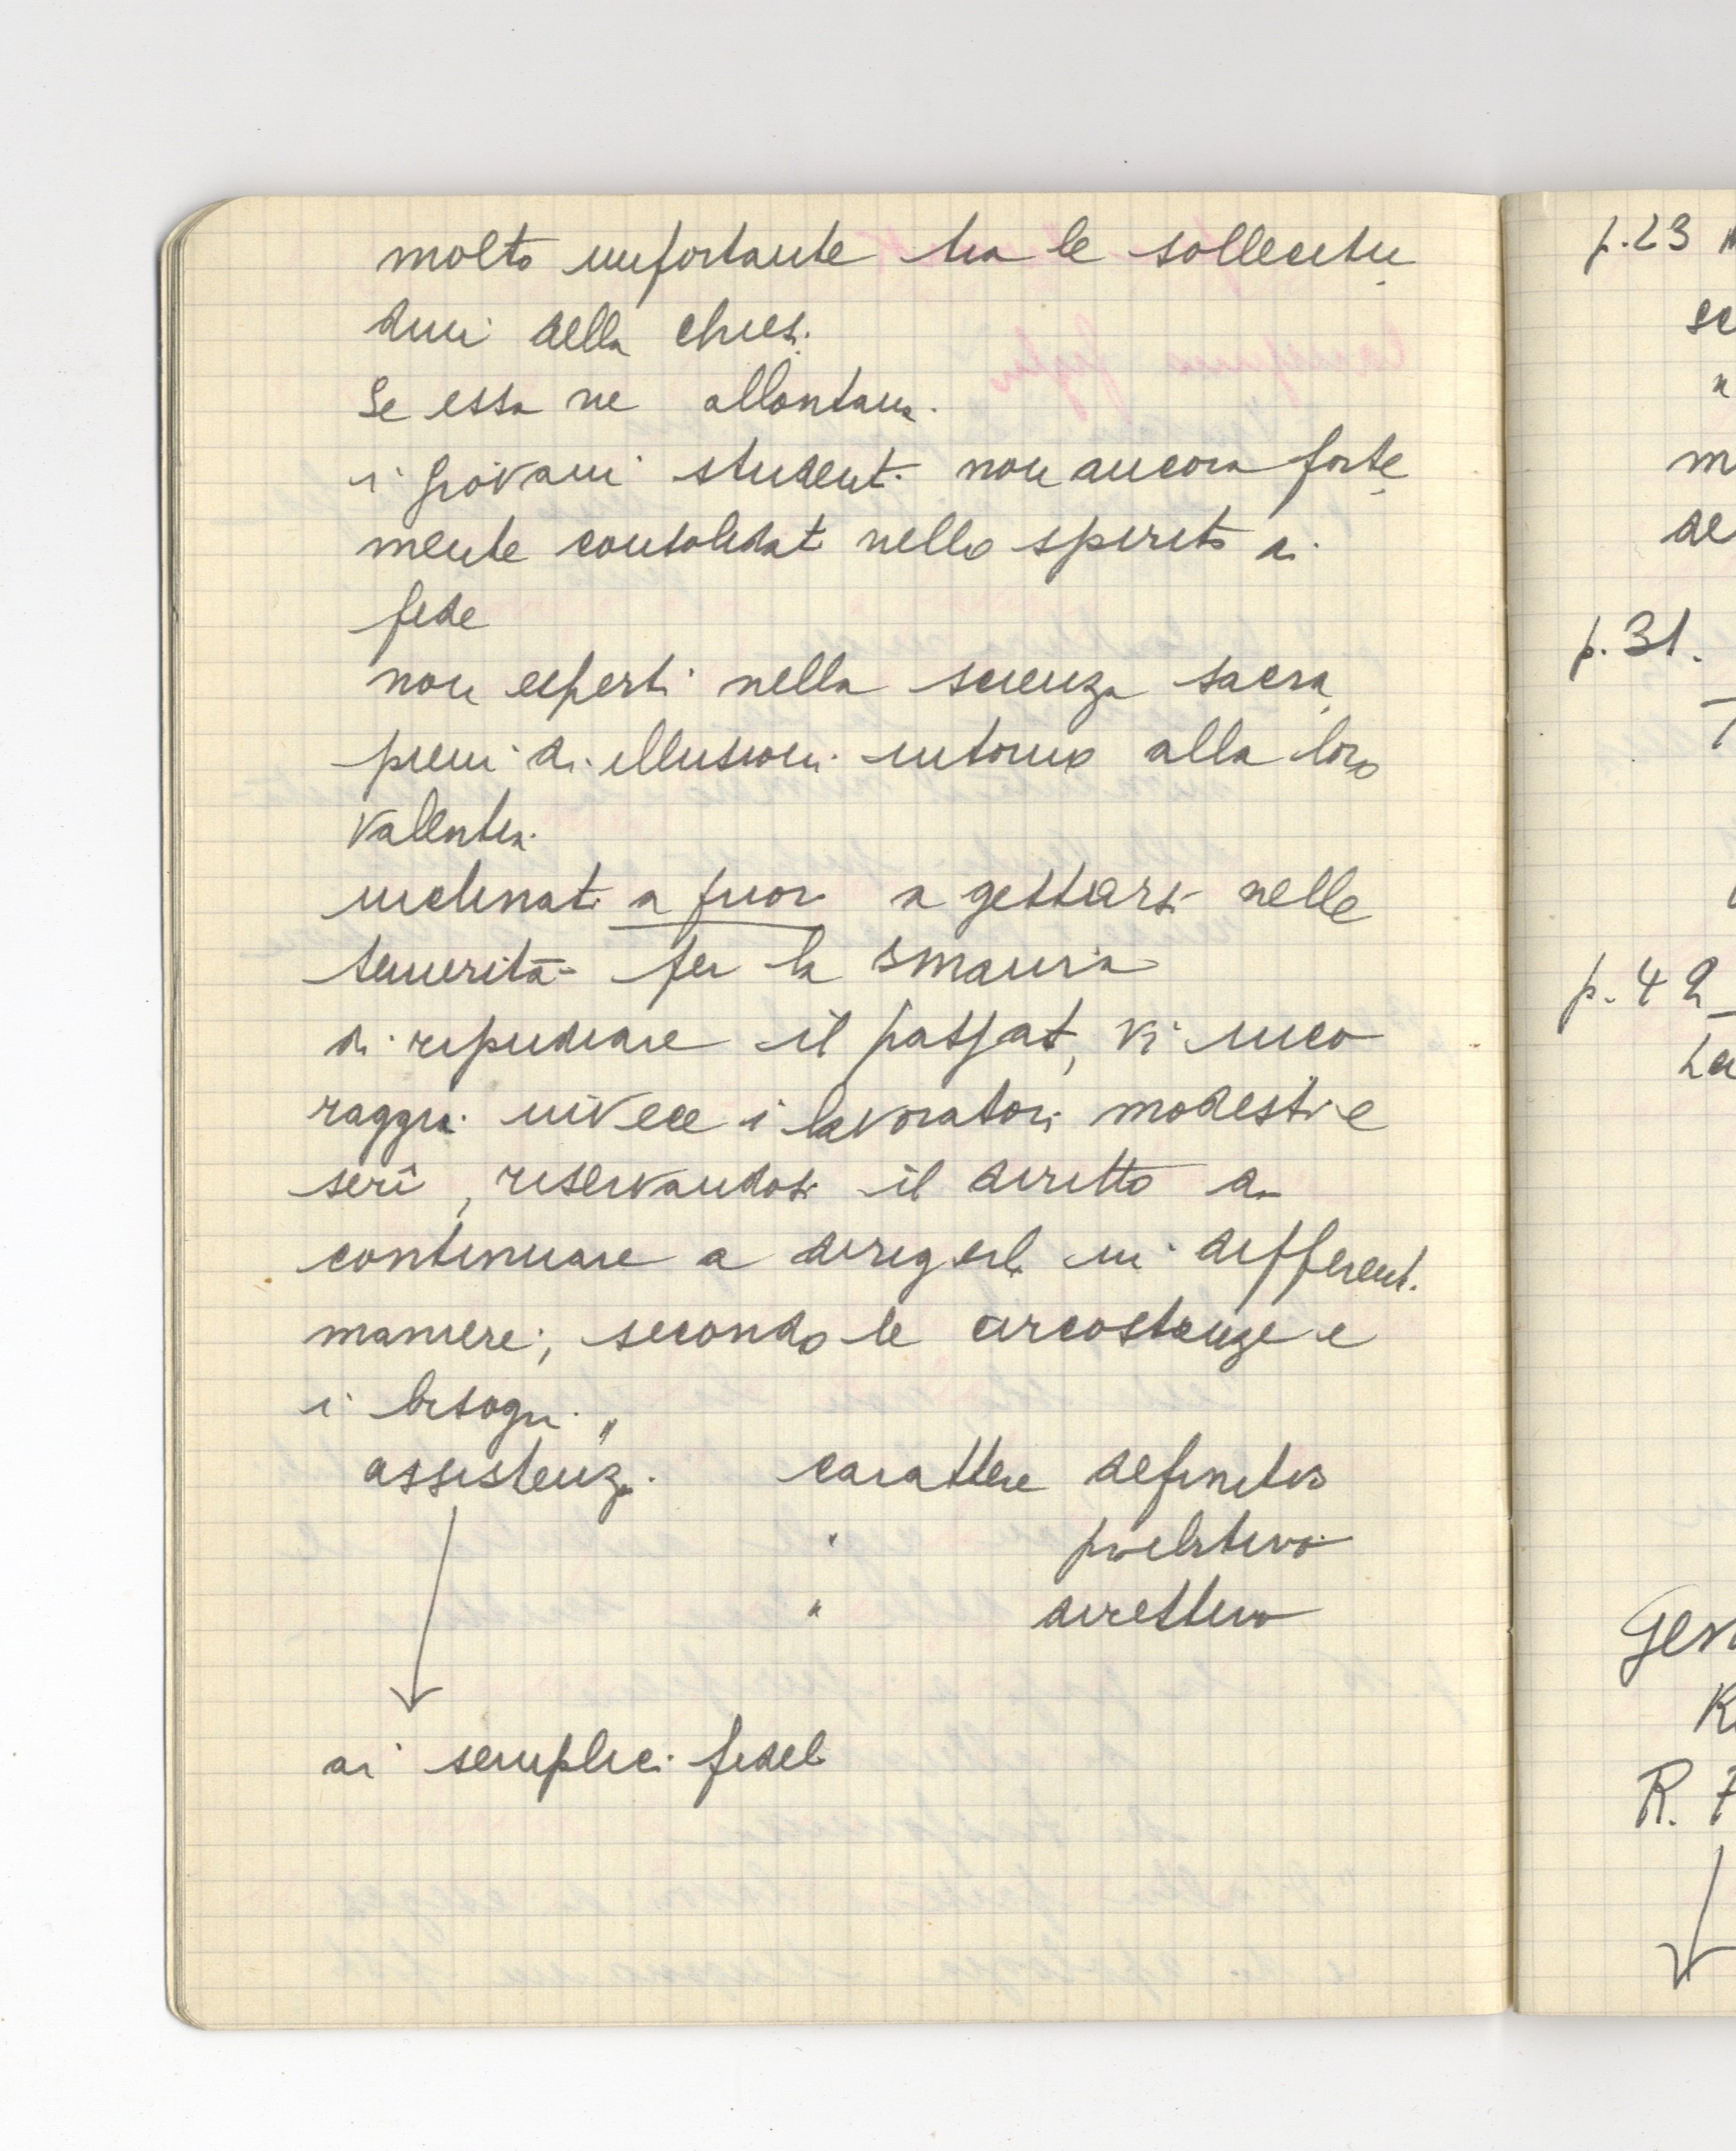 molto importante tra le sollecitu
dini della chiesa.
Se essa ne allontana
i giovani studenti non ancora forte
mente consolidati nello spirito di
fede
non esperti nella scienza sacra,
pieni di illusioni intorno alla loro
valentia.
inclinati a fuor a gettarsi nelle
temerità per la smania
di ripudiare il passato, vi inco
raggia invece i lavoratori modesti e
seri, riservandosi il diritto di
continuare a dirigerli in differenti
maniere, secondo le circostanze e
i bisogni "
assistenza carattere definitivo
" proibitivo
" direttivo
ai semplici fedeli
p.23
p.31.
p.42
R.